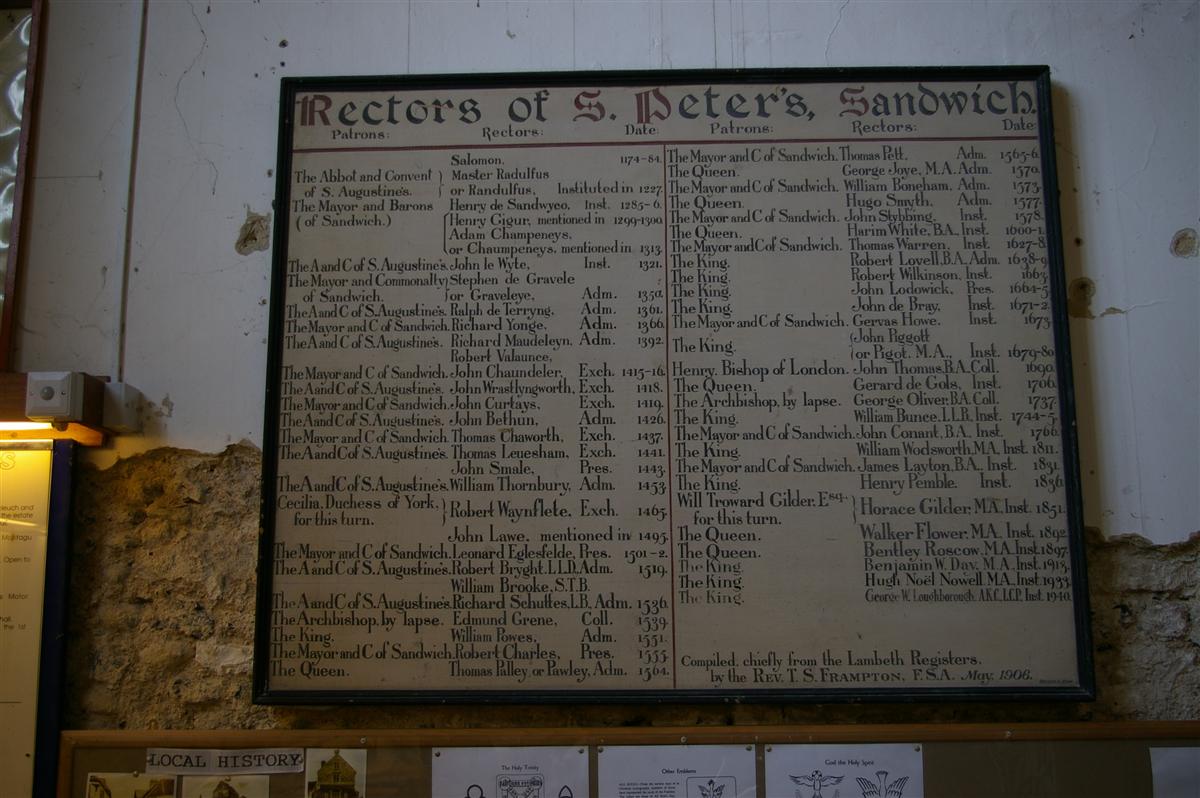 Rectors of S. Peter's, Sandwich.
Patrons: Rectors: Date: Patrons: Rectors: Date:
Salomon. 1174-84.
The Abbot and Convent of S. Augustine's. Master Radulfus
or Randulfus, Instituted in 1227.
The Mayor and Barons Henry de Sandwyco, Inst. 1285-6.
(of Sandwich.) Henry Gigur, mentioned in 1299-1300.
Adam Champeneys,
or Chaumpeneys, mentioned in 1313.
The A and C of S. Augustine's. John le Wyte, Inst. 1321.
The Mayor and Commonalty Stephen de Gravele
of Sandwich. or Graveleye, Adm. 1350.
The A and C of S. Augustine's. Ralph de Terryng, Adm. 1361.
The Mayor and C of Sandwich. Richard Yonge, Adm. 1366.
The A and C of S. Augustine's. Richard Maudeleyn, Adm. 1392.
Robert Valaunce,
The Mayor and C of Sandwich. John Chaundeler, Exch. 1415-16.
The A and C of S. Augustine's. John Wrastlyngworth, Exch. 1418.
The Mayor and C of Sandwich. John Curtays, Exch. 1419.
The A and C of S. Augustine's. John Bethun, Adm. 1426.
The Mayor and C of Sandwich. Thomas Chaworth, Exch. 1437.
The A and C of S. Augustine's. Thomas Leuesham, Exch. 1441.
John Smale, Pres. 1443.
The A and C of S. Augustine's. William Thornbury, Adm. 1453.
Cecilia, Duchess of York,
for this turn. Robert Waynflete, Exch. 1465.
John Lawe, mentioned in 1495.
The Mayor and C of Sandwich. Leonard Eglesfelde, Pres. 1501-2.
The A and C of S. Augustine's. Robert Bryght, LL.D, Adm. 1519.
William Brooke, S.T.B.
The A and C of S. Augustine's. Richard Schuttes, I.B, Adm. 1536.
The Archbishop, by lapse. Edmund Grene, Coll. 1539.
The King. William Powes, Adm. 1551.
The Mayor and C of Sandwich. Robert Charles, Pres. 1555.
The Queen. Thomas Palley, or Pawley, Adm. 1564.
The Mayor and C of Sandwich. Thomas Pett, Adm. 1565-6.
The Queen. George Joye, M.A. Adm. 1570.
The Mayor and C of Sandwich. William Boneham, Adm. 1573.
The Queen. Hugo Smyth, Adm. 1577.
The Mayor and C of Sandwich. John Stybbing, Inst. 1578.
The Queen. Harim White, B.A., Inst. 1600-1.
The Mayor and C of Sandwich. Thomas Warren, Inst. 1627-8.
The King. Robert Lovell, B.A. Adm. 1638-9.
The King. Robert Wilkinson, Inst. 1663.
The King. John Lodowick, Pres. 1664-5.
The King. John de Bray, Inst. 1671-2.
The Mayor and C of Sandwich. Gervas Howe, Inst. 1673.
The King. John Piggott
or Pigot, M.A., Inst. 1679-80.
Henry, Bishop of London. John Thomas, B.A. Coll. 1690.
The Queen. Gerard de Gols, Inst. 1706.
The Archbishop, by lapse. George Oliver, B.A. Coll. 1737.
The King. William Bunce, LL.B, Inst. 1744-5.
The Mayor and C of Sandwich. John Conant, B.A., Inst. 1766.
The King. William Wodsworth, M.A, Inst. 1811.
The Mayor and C of Sandwich. James Layton, B.A., Inst. 1831.
The King. Henry Pemble, Inst. 1836.
Will Troward Gilder, Esq.
for this turn. Horace Gilder, M.A, Inst. 1851.
The Queen. Walker Flower, M.A., Inst. 1892.
The Queen. Bentley Roscow, M.A, Inst. 1897.
The King. Benjamin W. Day, M.A., Inst. 1913.
The King. Hugh Noël Nowell M.A, Inst. 1933.
The King. George W. Loughborough, A.K.C., L.C.P, Inst. 1940.
Compiled, chiefly from the Lambeth Registers,
by the Rev. T. S. Frampton, F.S.A. May, 1906.
LOCAL HISTORY
The Holy Trinity
Other Emblems
God the Holy Spirit